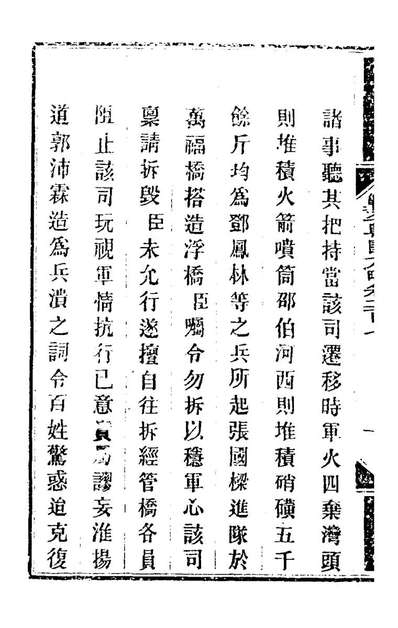 諸事聽其把持當該司遷移時軍火四棄灣頭
則堆積火箭噴筒邵伯河西則堆積硝磺五千
餘斤均為鄧鳳林等之兵所起張國樑進隊於
萬福橋搭造浮橋臣囑令勿拆以穩軍心該司
稟請拆毀臣未允行遂擅自往拆經管橋各員
阻止該司玩視軍情抗行已意實屬謬妄淮揚
道郭沛霖造為兵潰之詞令百姓驚惑迨克復